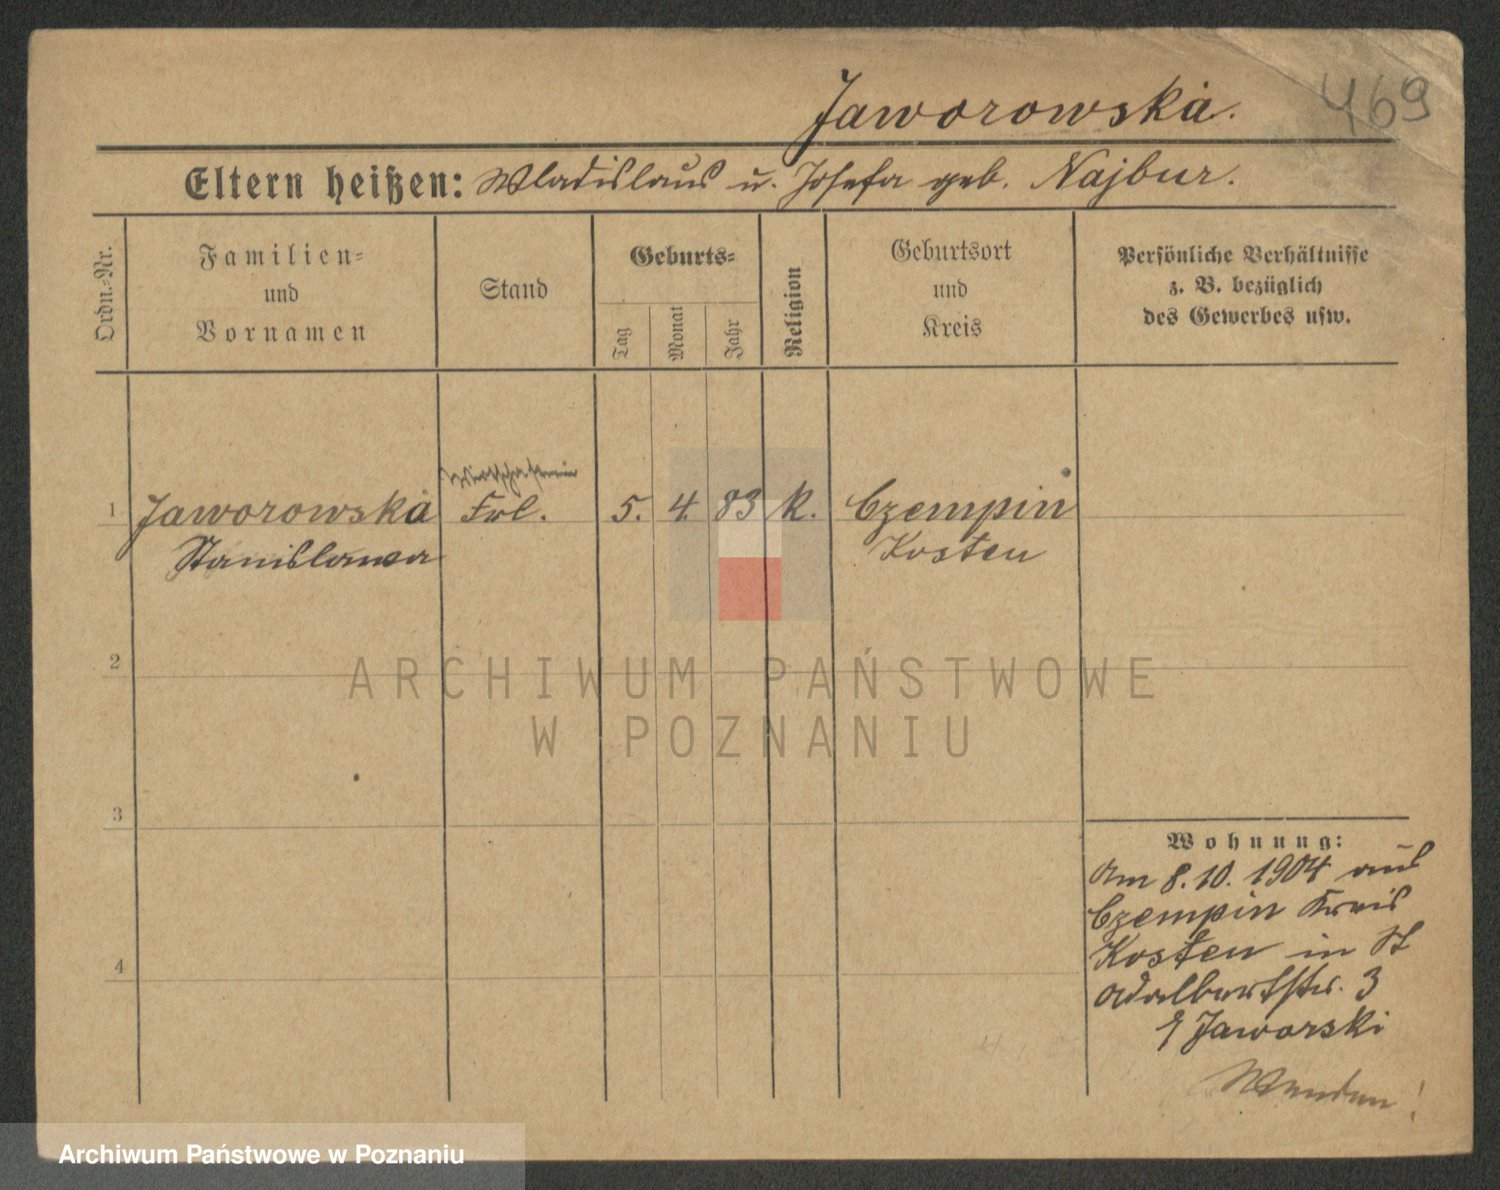 469
Jaworowska.
Eltern heißen: Wladislaus u. Josefa geb. Najbur.
Ordn.-Nr.
Familien-
und
Vornamen
Stand
Geburts-
Tag
Monat
Jahr
Religion
Geburtsort
und
Kreis
Persönliche Verhältnisse
z. B. bezüglich
des Gewerbes usw.
1 Jaworowska Frl. 5. 4. 83 K. Czempin
Stanislawa Kosten
2
ARCHIWUM PAŃSTWOWE
W POZNANIU
3
Wohnung:
Am 8.10.1904 aus
Czempin Kreis
Kosten in St
Adalbertstr. 3
Jaworski
Wenden!
4
Archiwum Państwowe w Poznaniu